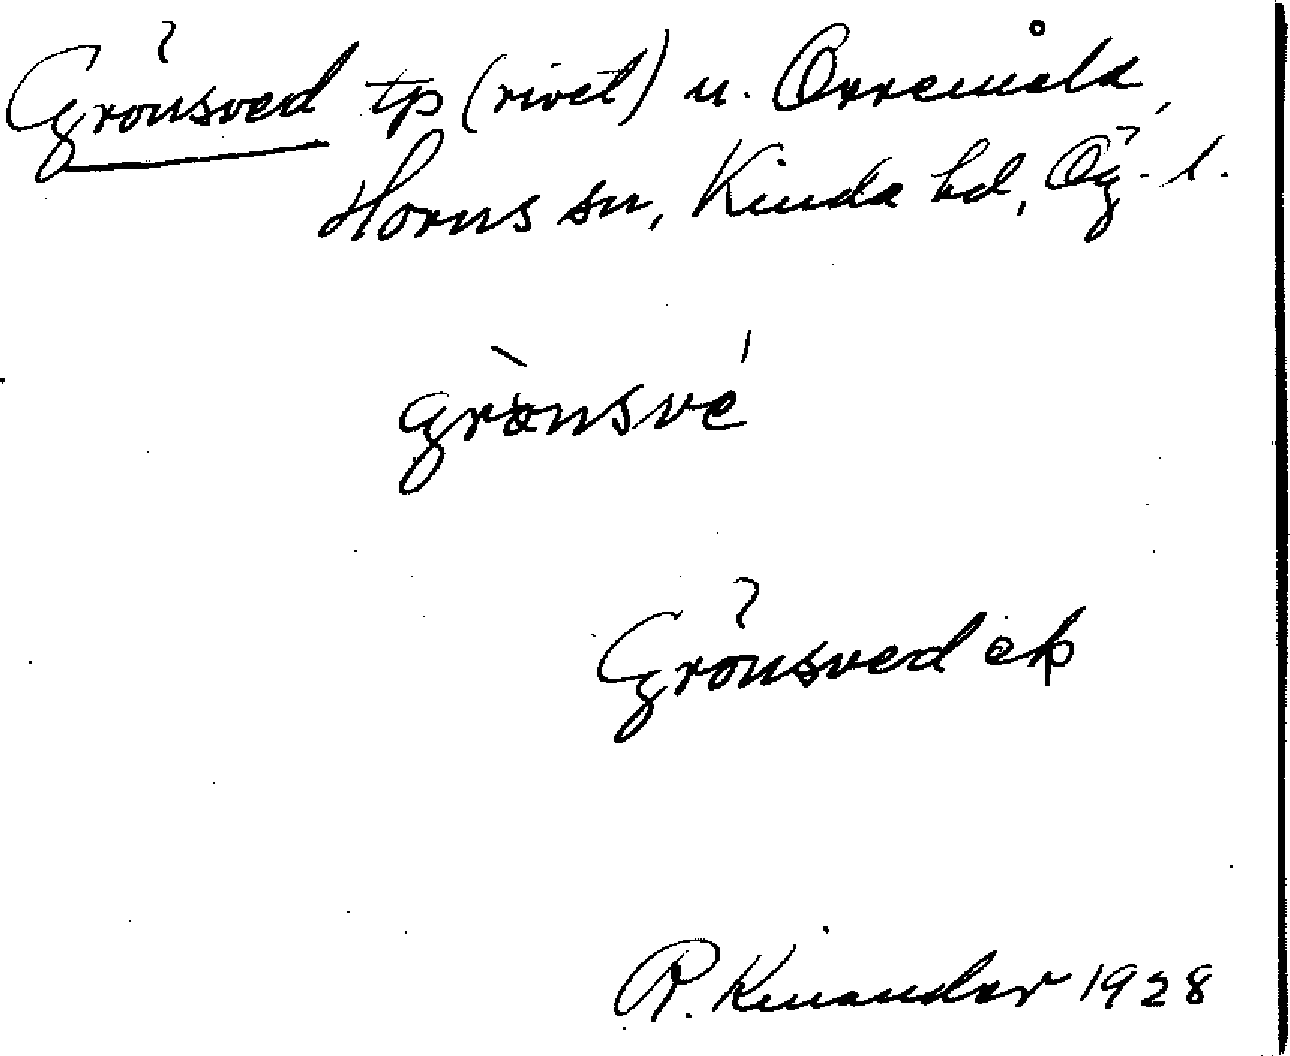 Grönsved tp (rivet) u. Orremåla,
Horns sn, Kinda hd, Ög. l.
grö̀nsvé
Grönsved ek
R. Kinander 1928